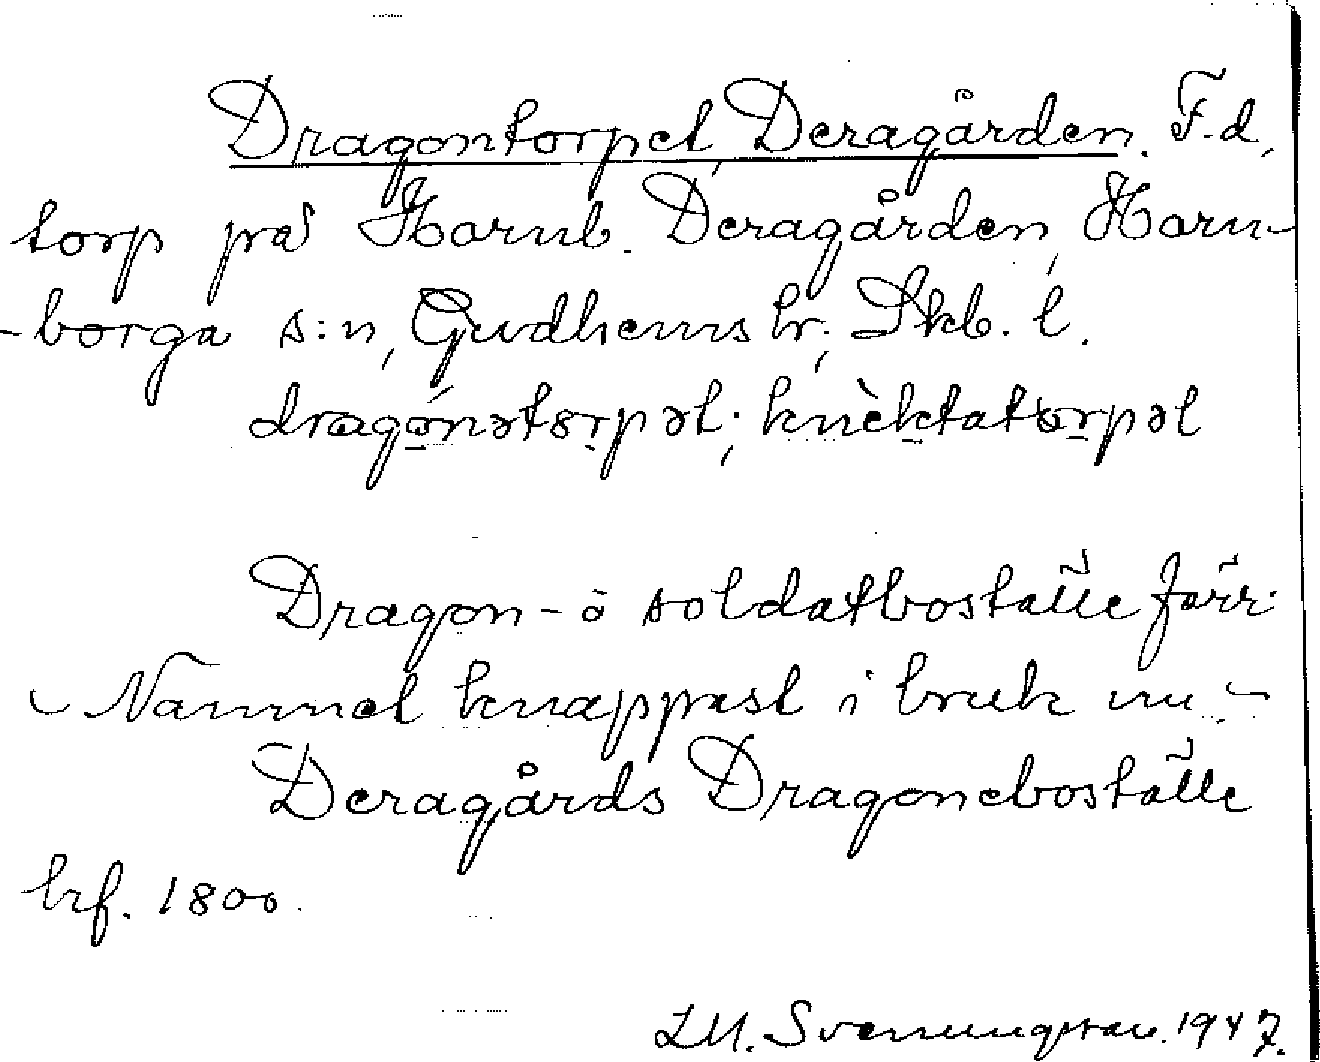 Dragontorpet, Deragården. F.d.
torp på Hornb. Deragården, Horn-
-borga s:n, Gudhems hr; Skb. l.
dragónətɔrpət; knèktatɔrpət
Dragon- o soldatboställe förr.
Namnet knappast i bruk nu.
Deragårds Dragoneboställe
hrf. 1800.
LM. Svenungsson. 1947.